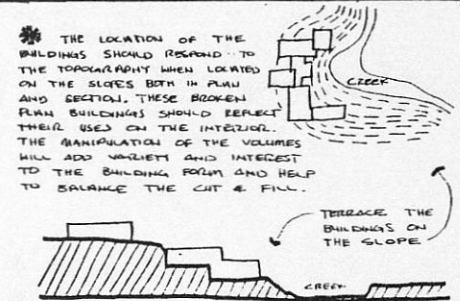 ✱ THE LOCATION OF THE
BUILDINGS SHOULD RESPOND TO
THE TOPOGRAPHY WHEN LOCATED
ON THE SLOPES BOTH IN PLAN
AND SECTION. THESE BROKEN
PLAN BUILDINGS SHOULD REFLECT
THEIR USES ON THE INTERIOR.
THE MANIPULATION OF THE VOLUMES
WILL ADD VARIETY AND INTEREST
TO THE BUILDING FORM AND HELP
TO BALANCE THE CUT & FILL.
CREEK
TERRACE THE
BUILDINGS ON
THE SLOPE
CREEK